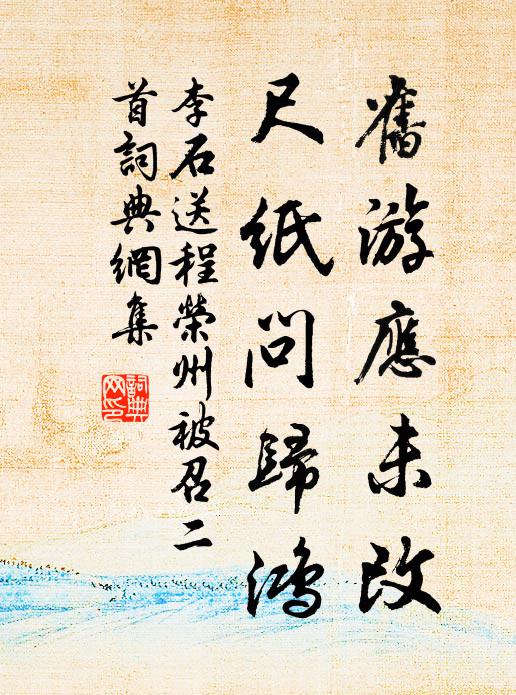 舊游應未改
尺紙問歸鴻
李石送程榮州被召二
首詞典網集
詞典
网印